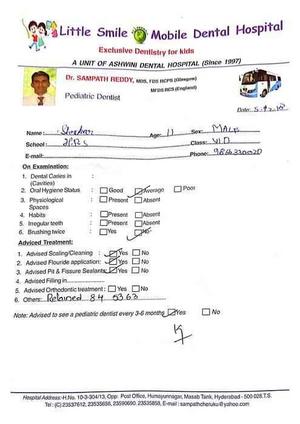 Little Smile Mobile Dental Hospital
Exclusive Dentistry for kids
A UNIT OF ASHWINI DENTAL HOSPITAL (Since 1997)
Dr. SAMPATH REDDY, MDS, FDS RCPS (Glasgow)
MFDS RCS (England)
Pediatric Dentist
Date:
Name: Age: 11 Sex: Male
School: HPS Class: VII
E-mail: Phone:
On Examination:
1. Dental Caries in :
(Cavities)
2. Oral Hygiene Status : Good Average Poor
3. Physiological : Present Absent
Spaces
4. Habits : Present Absent
5. Irregular teeth : Present Absent
6. Brushing twice : Yes No
Advised Treatment:
1. Advised Scaling/Cleaning : Yes No
2. Advised Flouride application: Yes No
3. Advised Pit & Fissure Sealants: Yes No
4. Advised Filling in
5. Advised Orthodontic treatment : Yes No
6. Others: Retained 84 53 63
Note: Advised to see a pediatric dentist every 3-6 months Yes No
Hospital Address: H.No. 10-3-304/13, Opp: Post Office, Humayunnagar, Masab Tank, Hyderabad - 500 028.T.S.
Tel: (C) 23537612, 23535658, 23590690. 23535858, E-mail : sampathcheruku@yahoo.com